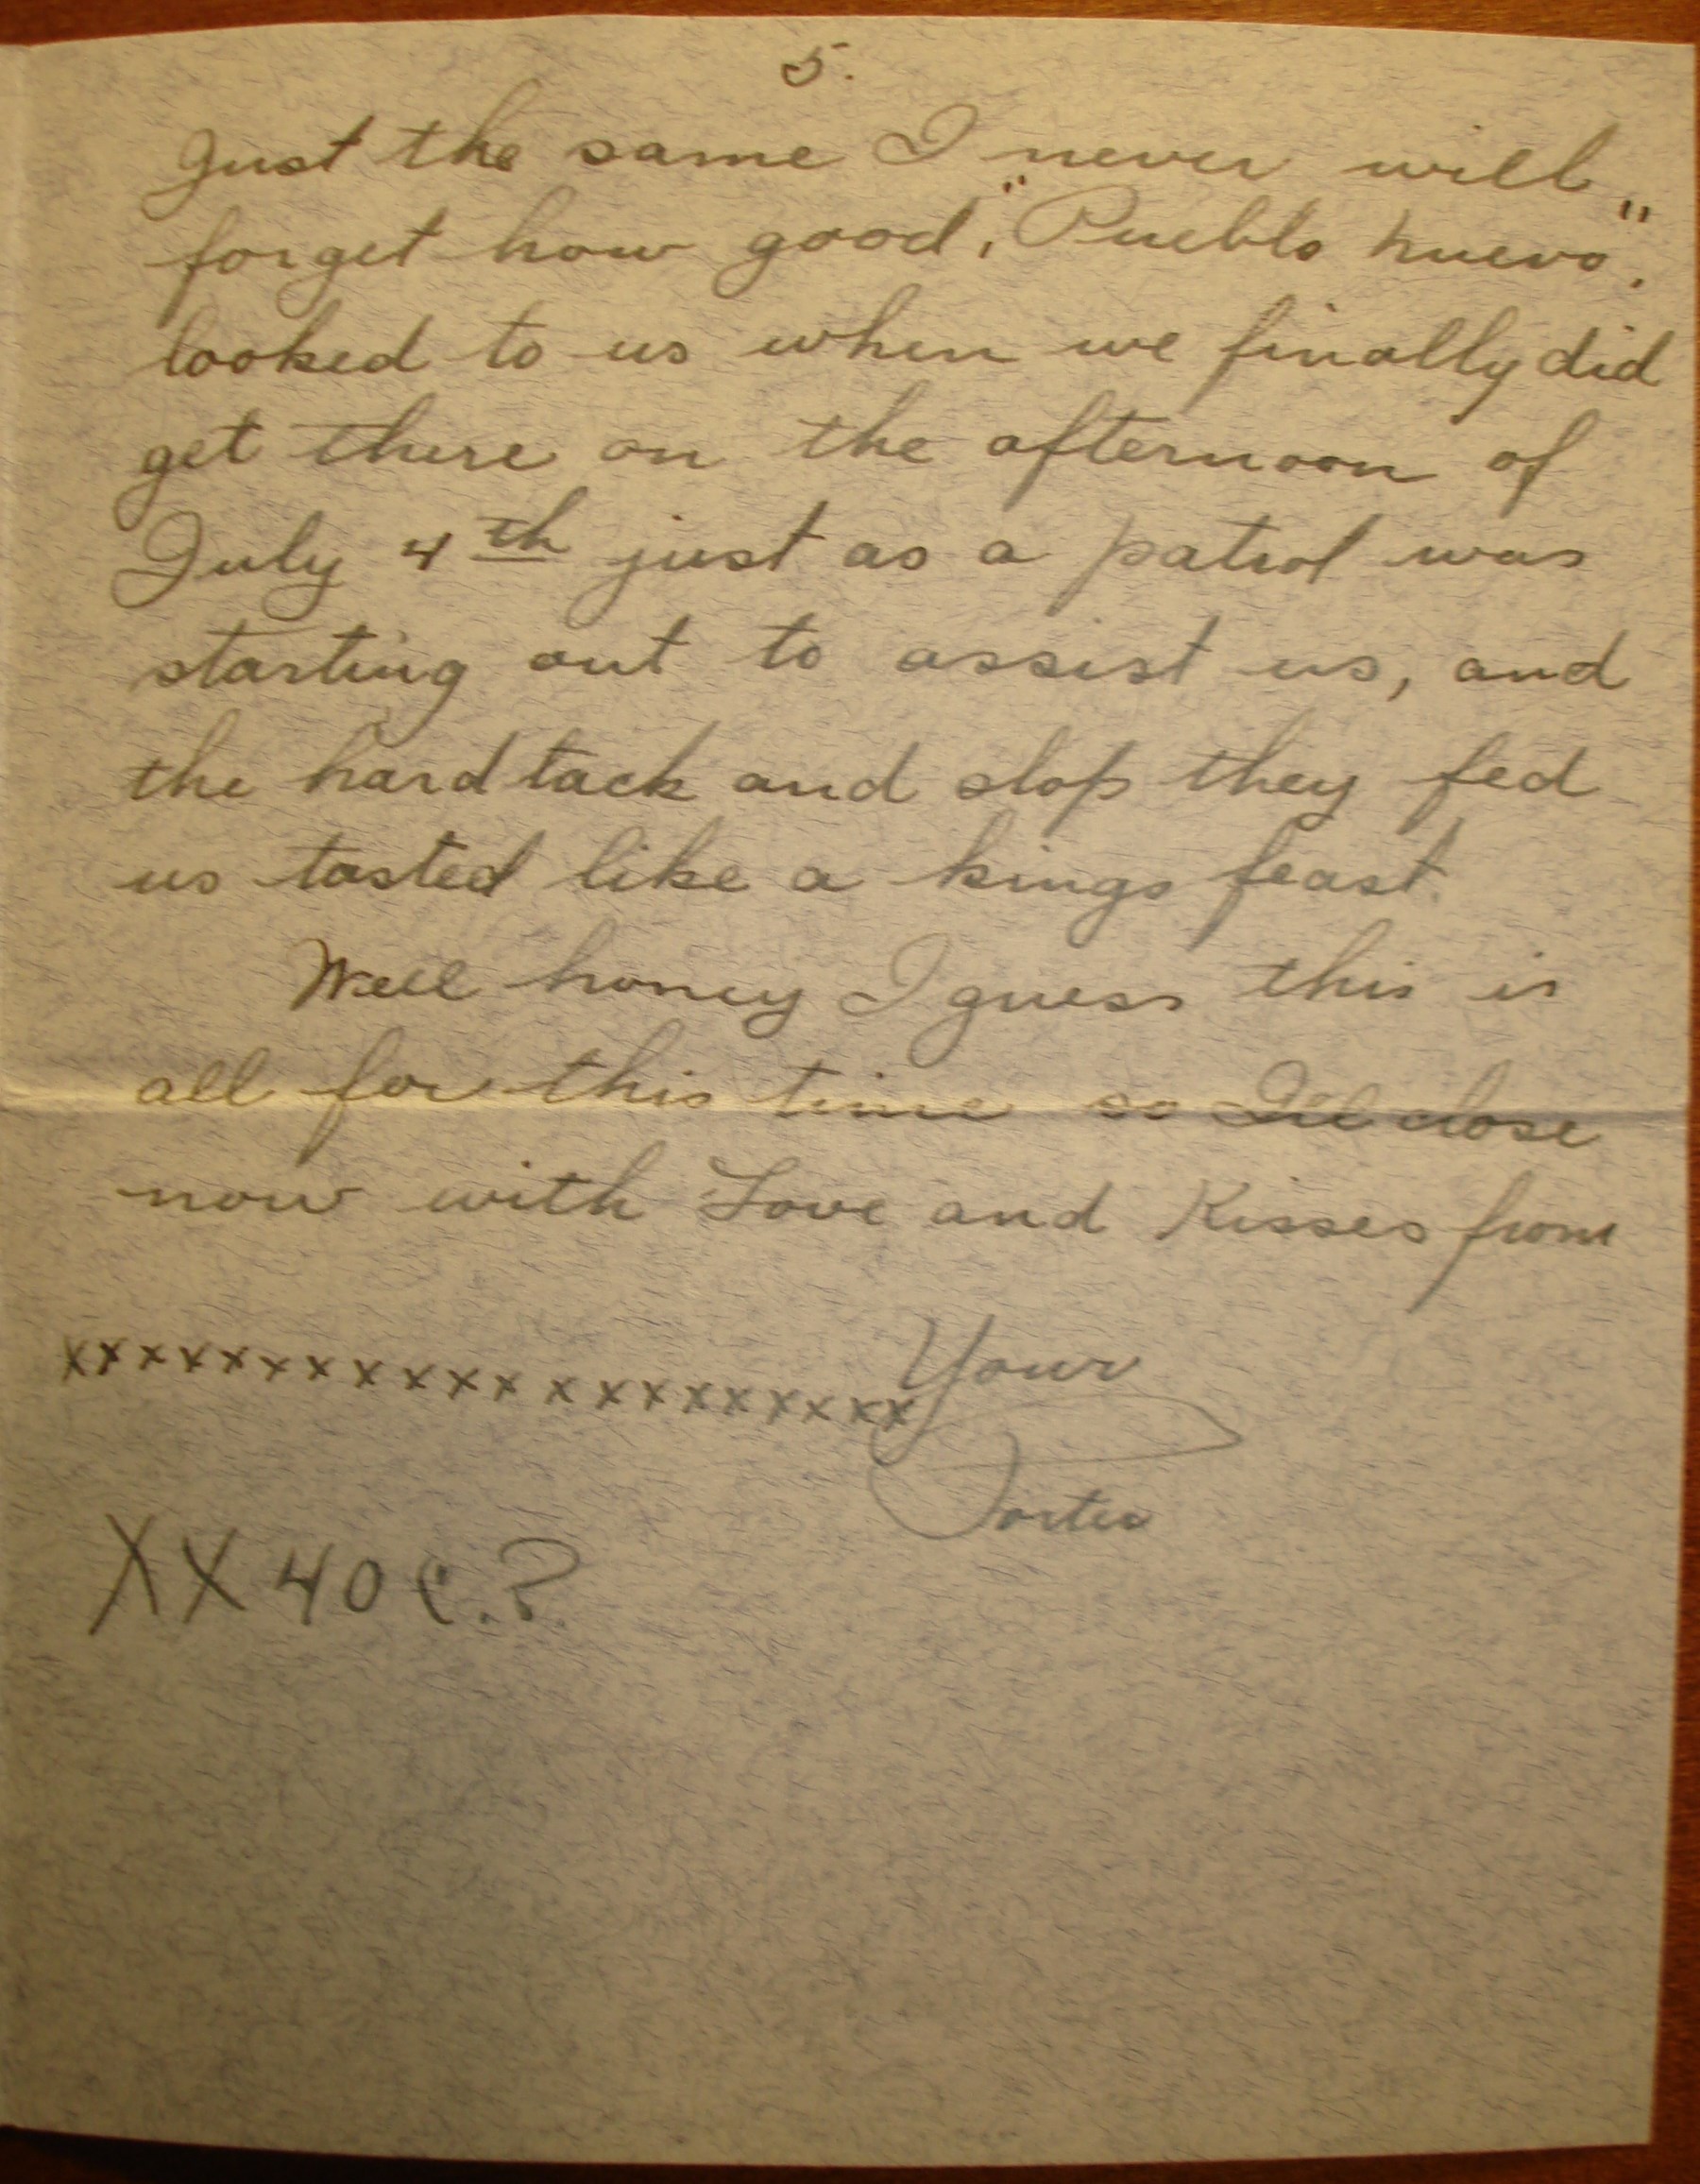 5.
Just the same I never will
forget how good, "Pueblo nuevo",
looked to us when we finally did
get there on the afternoon of
July 4th just as a patrol was
starting out to assist us, and
the hard tack and slop they fed
us tasted like a kings feast.
Well honey I guess this is
all for this time so I'll close
now with Love and Kisses from
xxxxxxxxxxxxxxxxxxxx Your
XX40C.?